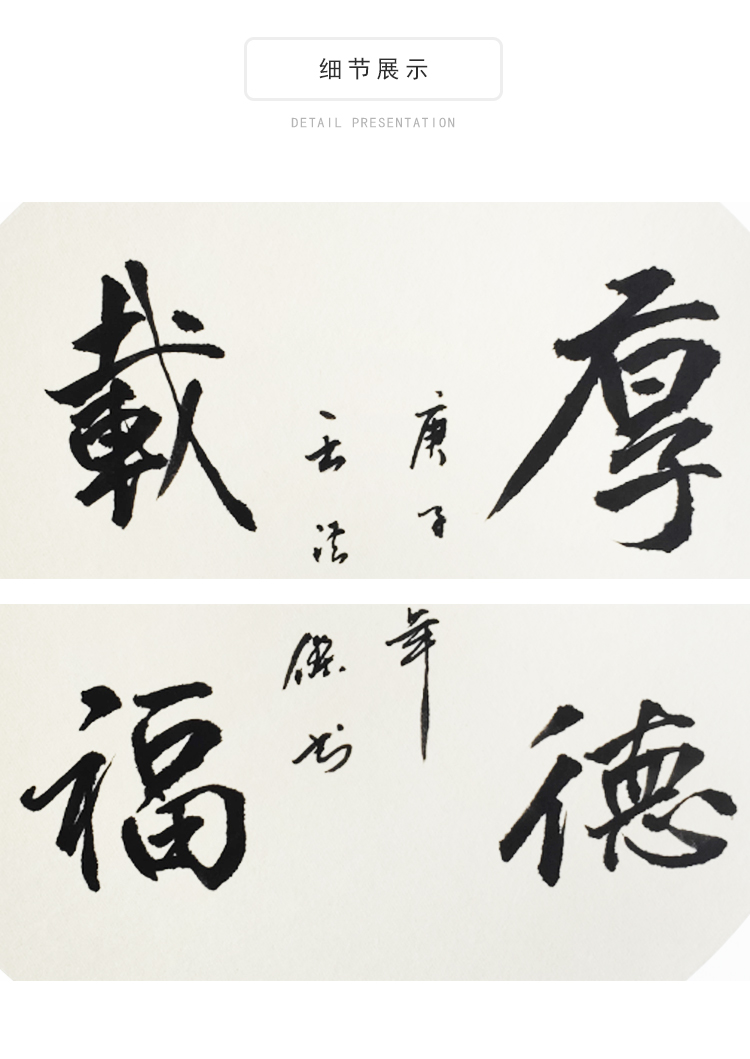 细节展示
DETAIL PRESENTATION
厚
庚子
法
載
德
年
书
福